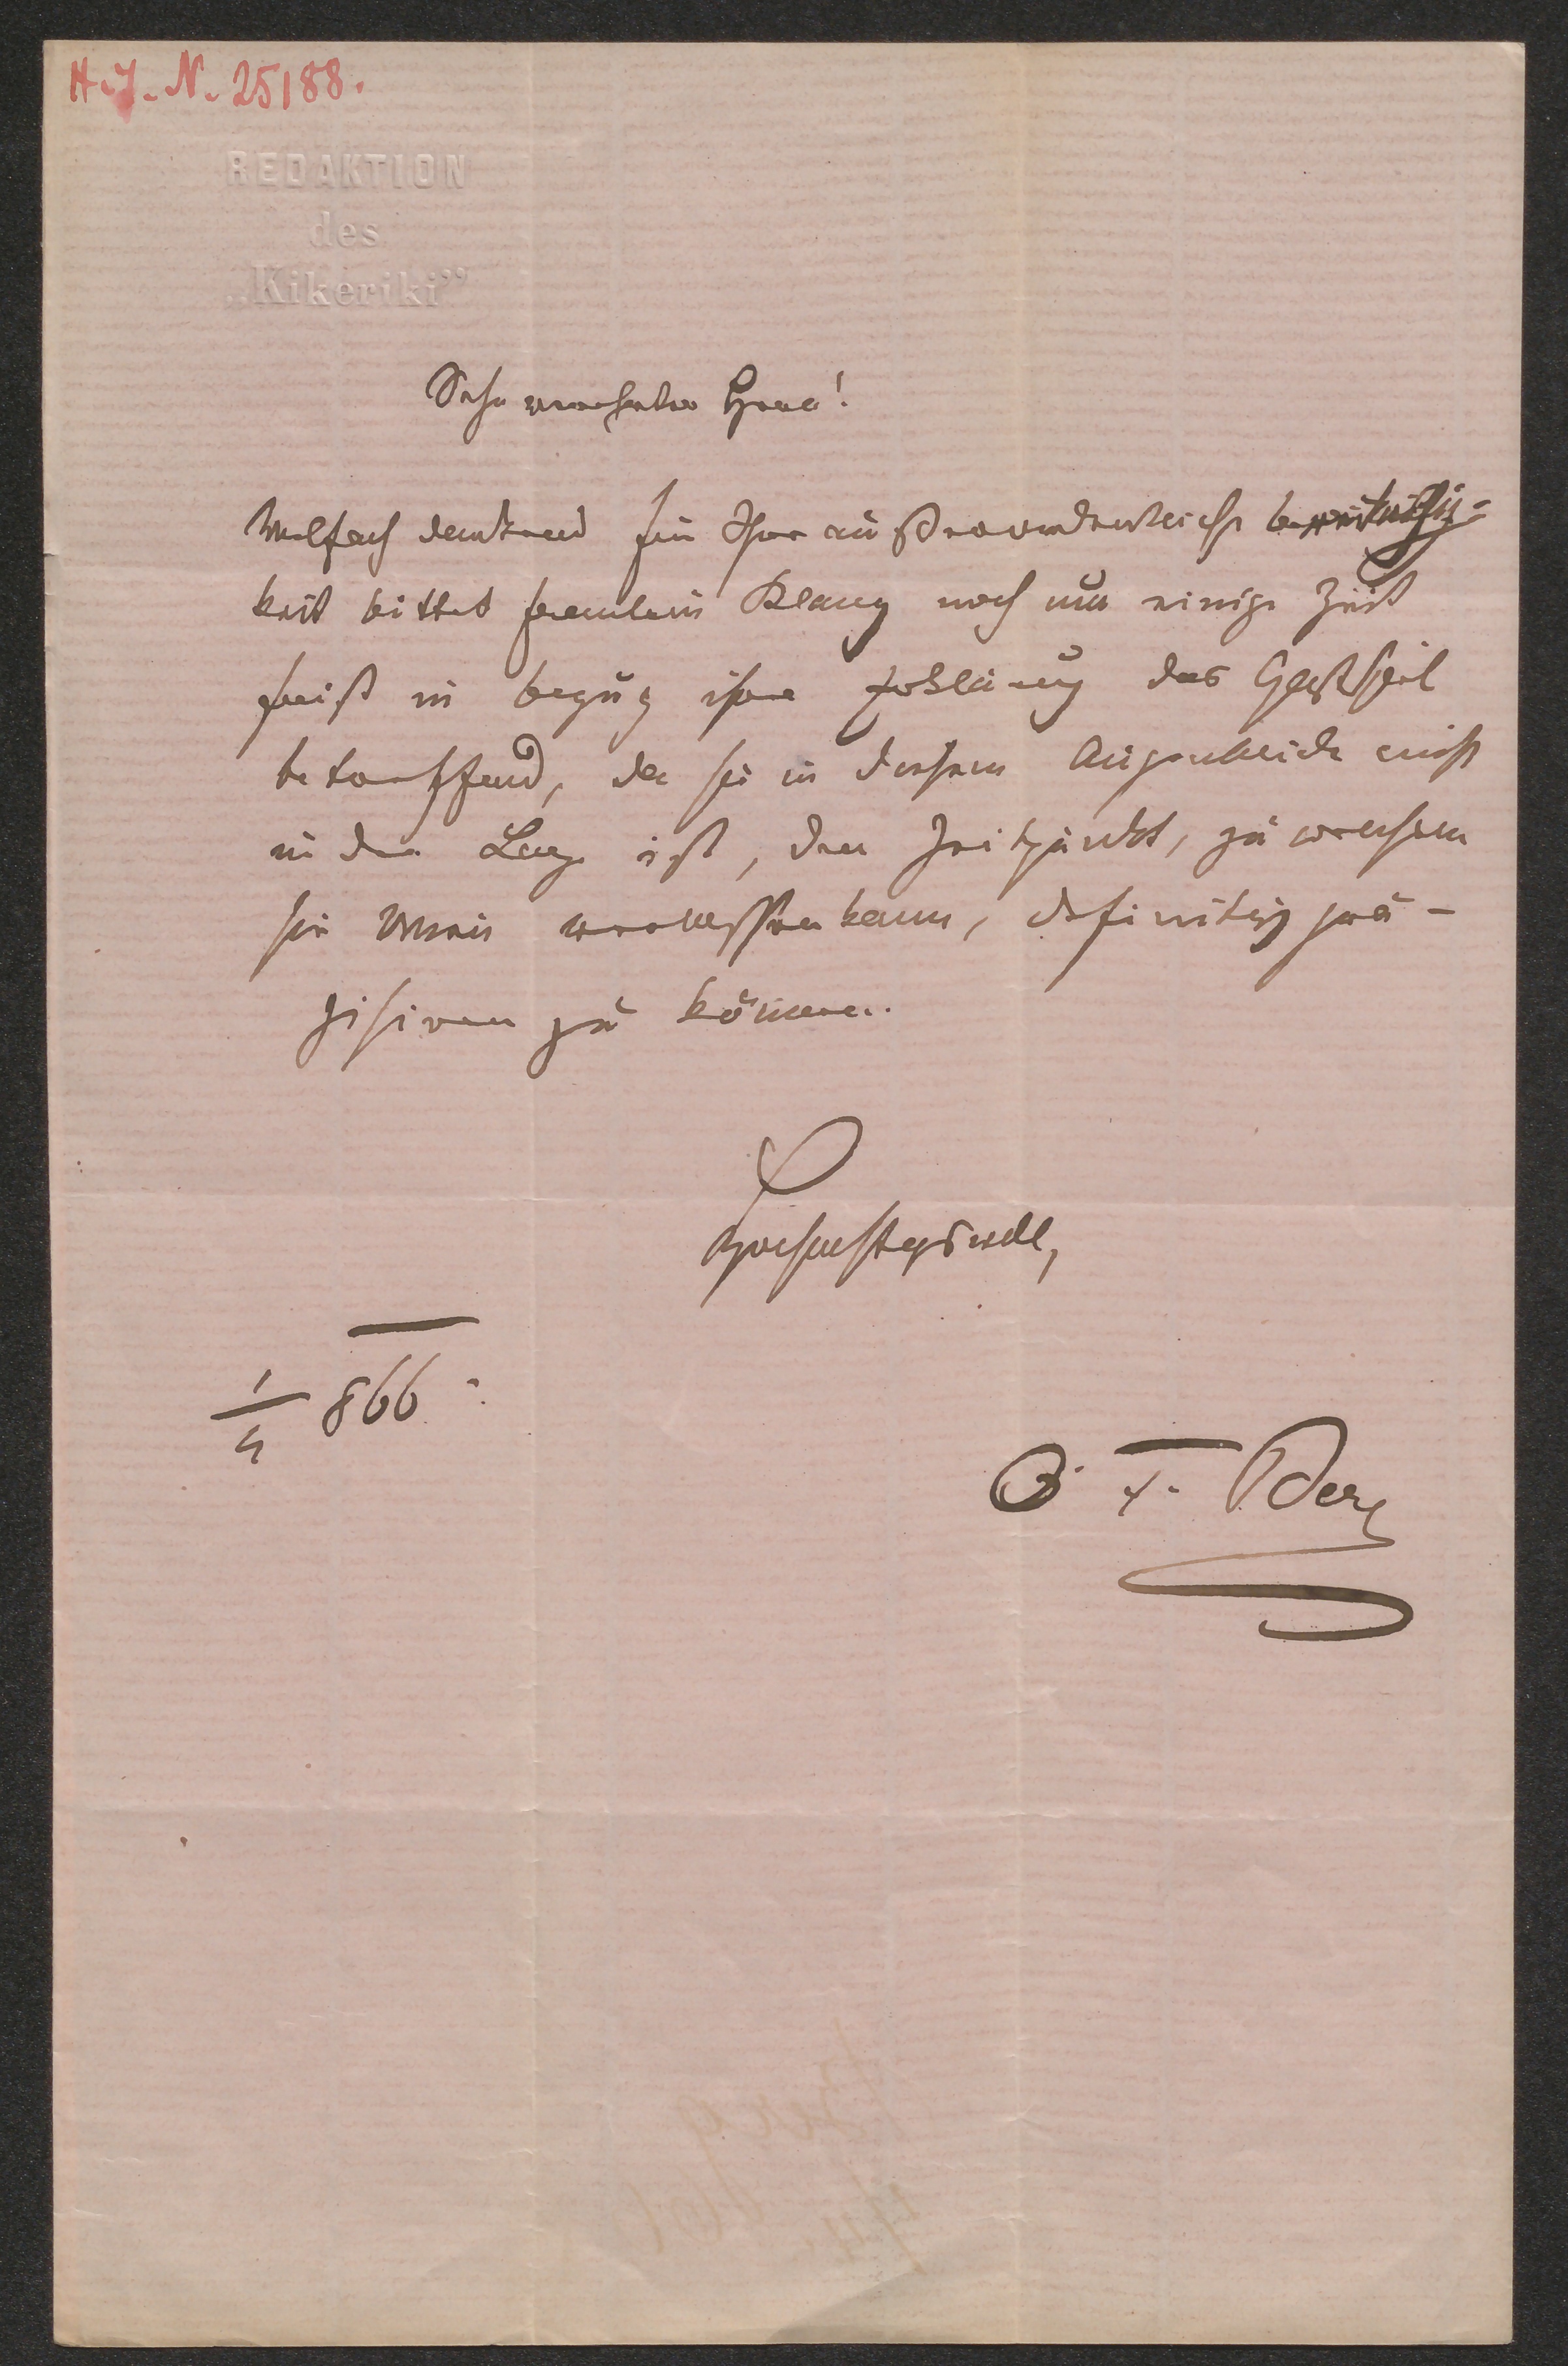 H. I. N. 25188.
REDAKTION
des
„Kikeriki”
Sehr verehrter Herr!
Vielfach dankend für Ihre außerordentliche bereitwillig-
keit bittet fräulein Klang noch um einige Zeit
frist in bezug ihre Erklärung das Gastspiel
betreffend, da sie in diesem Augenblicke nicht
in der Lage ist, den Zeitpunkt, zu welchem
sie Wien verlassen kann, definitiv prä-
zisiren zu können.
Hochachtungsvoll,
1/4 866.
O. F. Berg